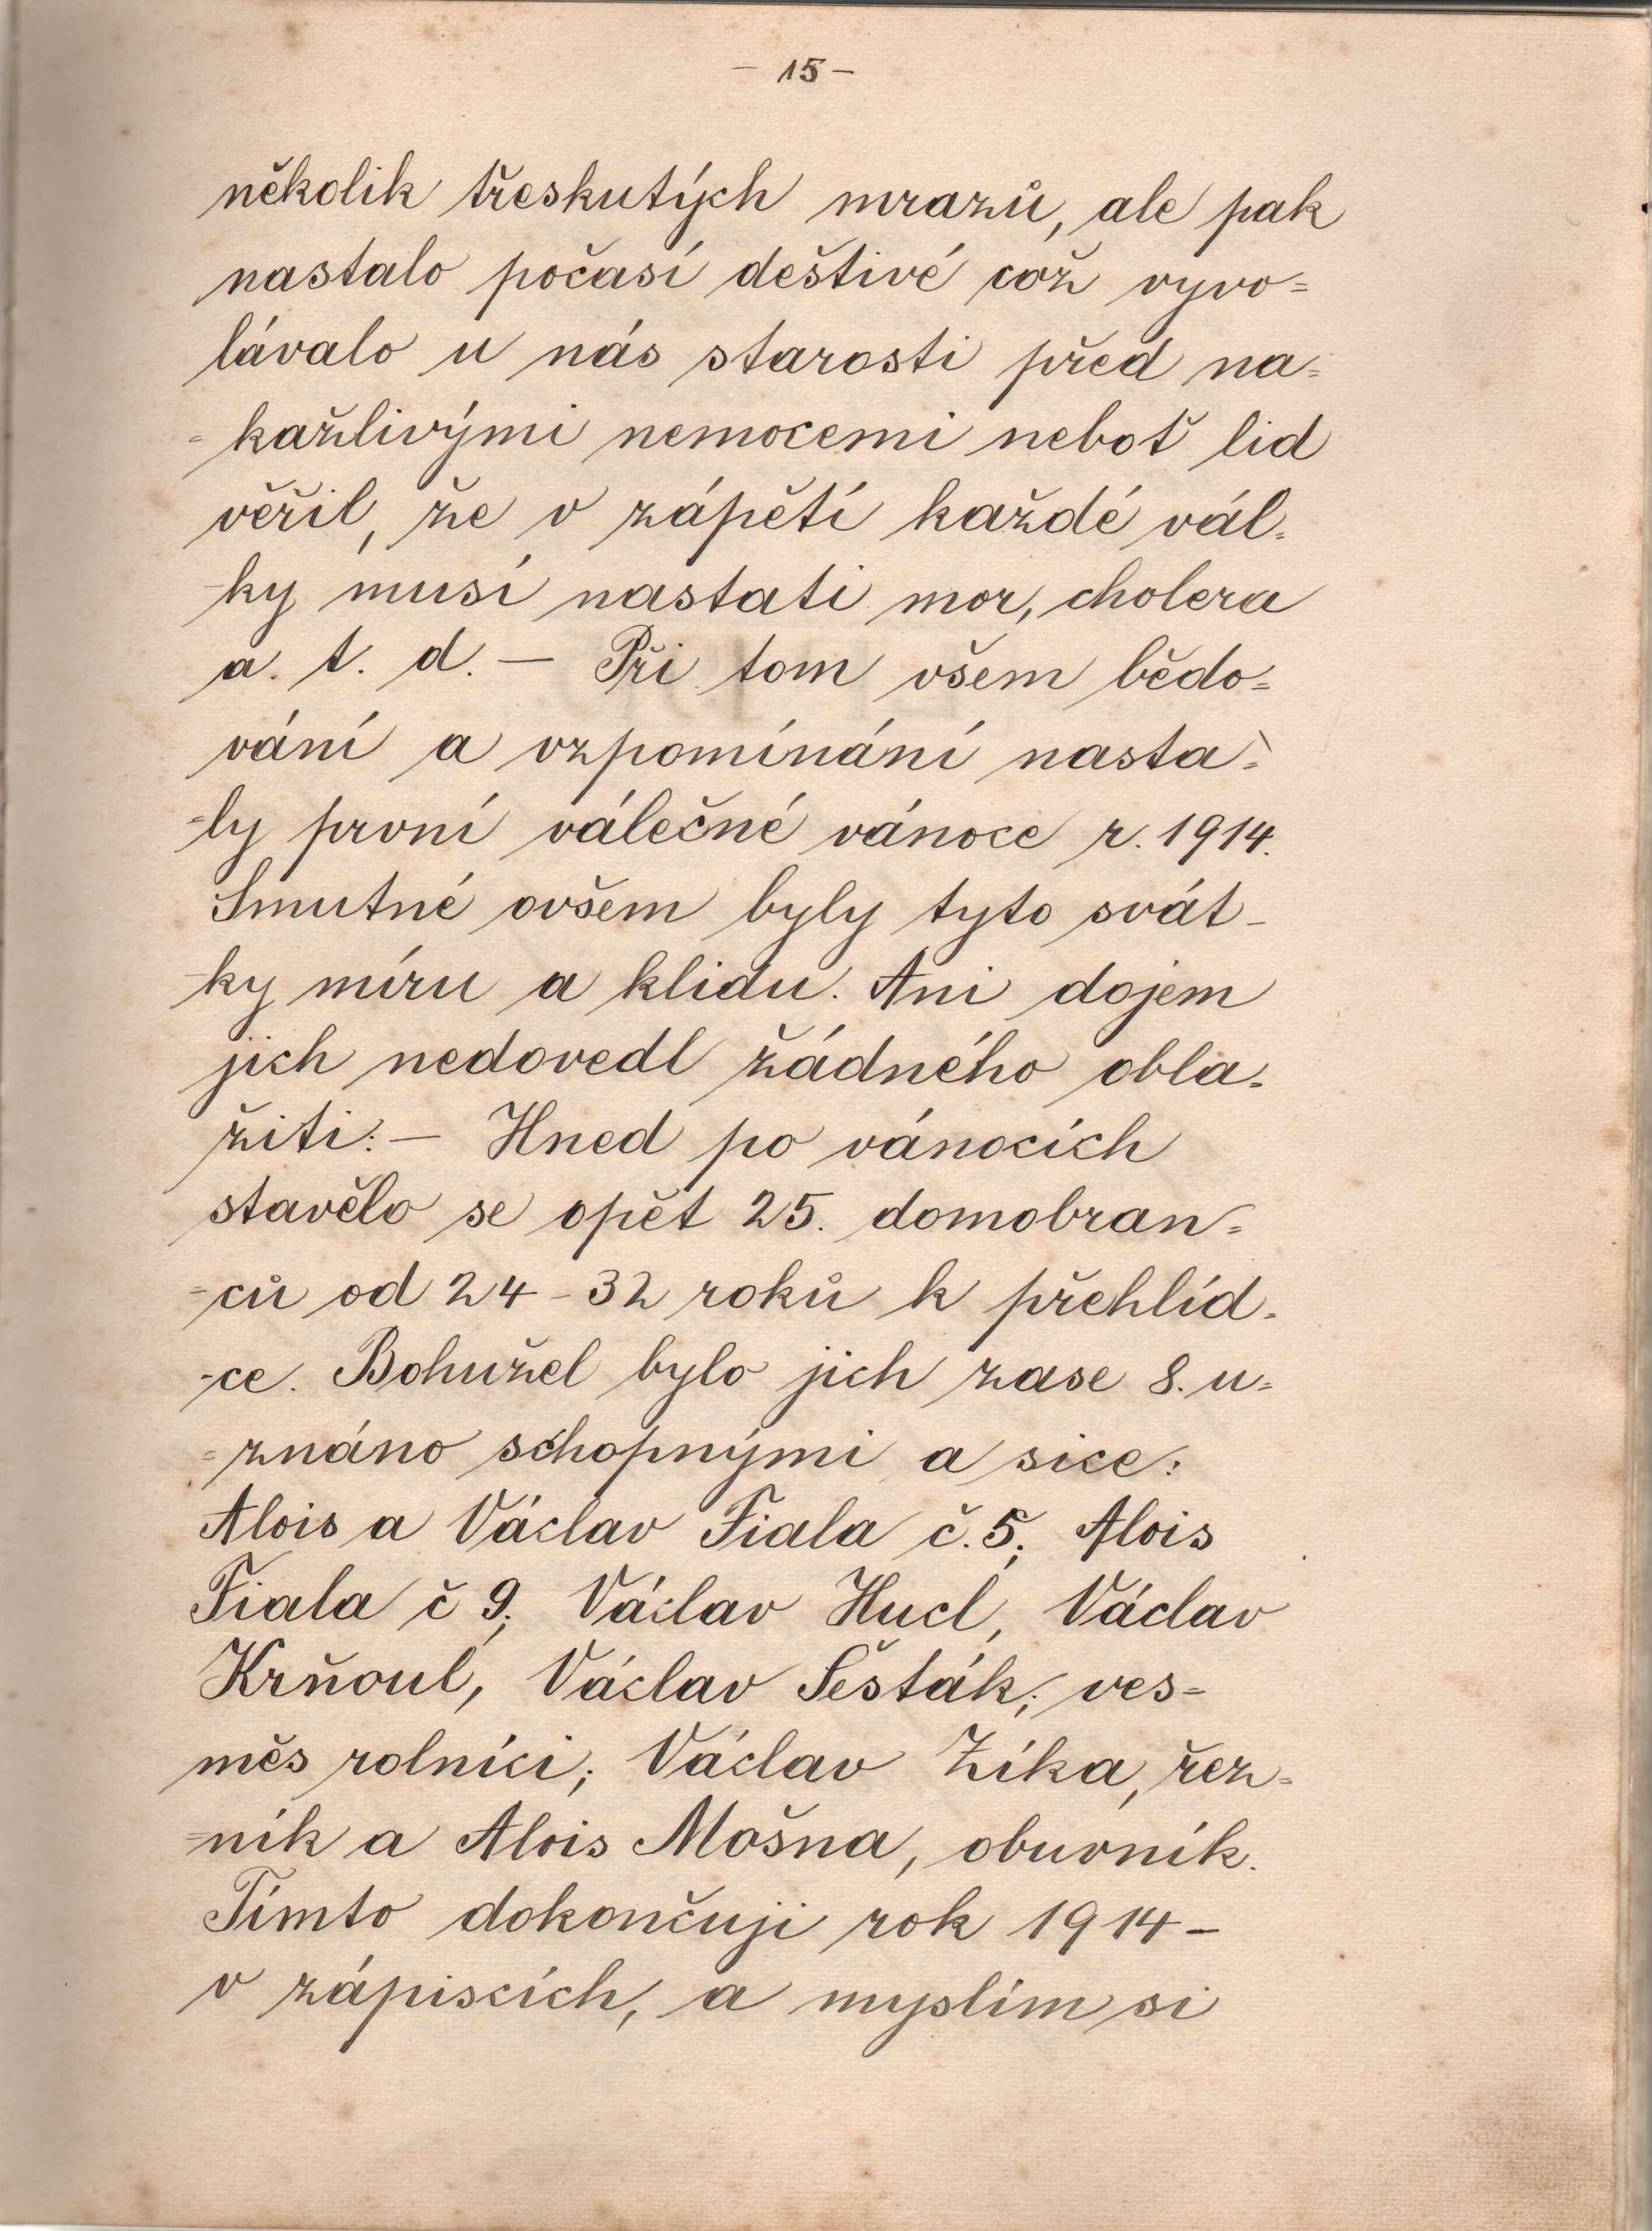 – 15 –
několik třeskutých mrazů, ale pak
nastalo počasí deštivé což vyvo=
lávalo u nás starosti před na=
=kažlivými nemocemi neboť lid
věřil, že v zápětí každé vál=
-ky musí nastati mor, cholera
a. t. d. – Při tom všem bědo=
vání a vzpomínání nasta=
=ly první válečné vánoce r. 1914.
Smutné ovšem byly tyto svát-
-ky míru a klidu. Ani dojem
jich nedovedl žádného obla=
žiti. – Hned po vánocích
stavělo se opět 25. domobran=
=ců od 24 – 32 roků k přehlíd=
-ce. Bohužel bylo jich zase 8. u=
=znáno schopnými a sice:
Alois a Václav Fiala č. 5; Alois
Fiala č 9; Václav Hucl, Václav
Krňoul, Václav Šesták; ves=
měs rolníci; Václav Zíka, řez=
=ník a Alois Mošna, obuvník.
Tímto dokončuji rok 1914 –
v zápiscích, a myslím si